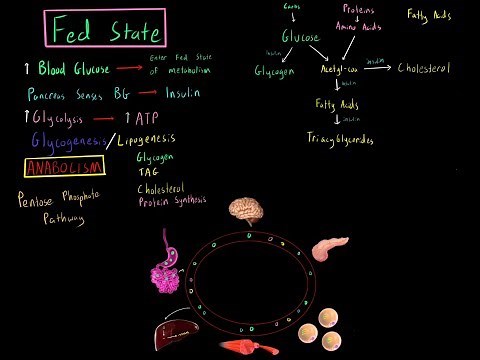 Fed State
↑ Blood Glucose → Enter Fed State of metabolism
Pancreas Senses BG → Insulin
↑ Glycolysis → ↑ ATP
Glycogenesis / Lipogenesis
ANABOLISM
Glycogen
TAG
Cholesterol
Protein Synthesis
Pentose Phosphate
Pathway
Proteins
Amino Acids
Fatty Acids
Glucose
insulin
Glycogen
Acetyl-coa
insulin
Cholesterol
insulin
Fatty Acids
insulin
Triacylglycerides